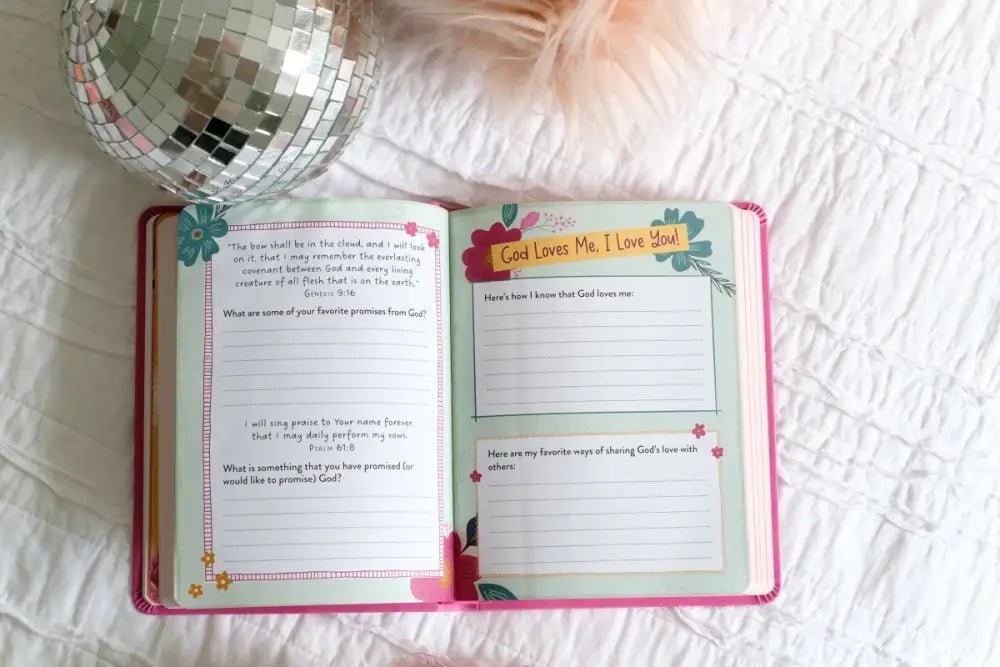 "The bow shall be in the cloud, and I will look
on it, that I may remember the everlasting
covenant between God and every living
creature of all flesh that is on the earth."
Genesis 9:16
What are some of your favorite promises from God?
I will sing praise to Your name forever,
that I may daily perform my vows.
Psalm 61:8
What is something that you have promised (or
would like to promise) God?
God Loves Me, I Love You!
Here's how I know that God loves me:
Here are my favorite ways of sharing God's love with
others: